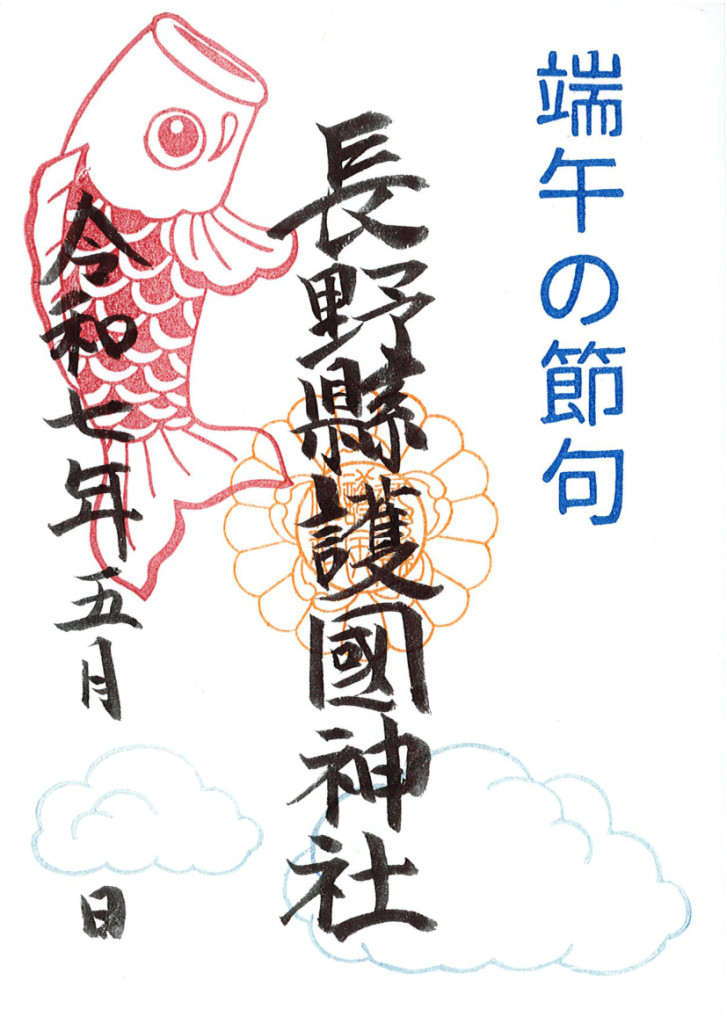 端午の節句
長野縣護國神社
令和七年五月 日